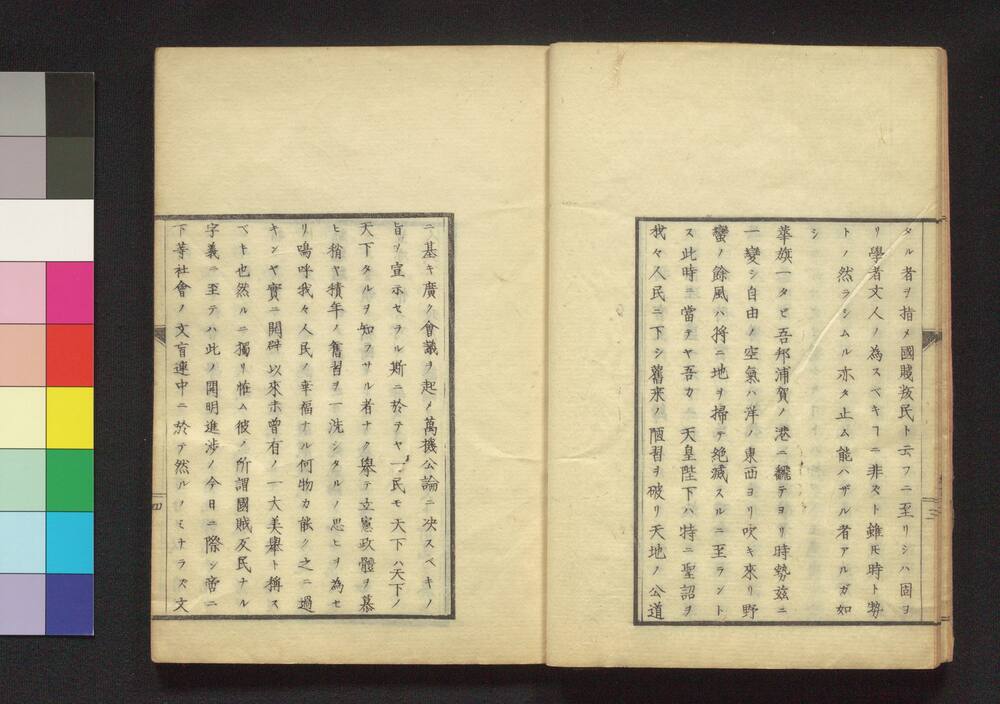 タル者ヲ指メ國賊叛民ト云フニ至リシハ固ヨ
リ學者文人ノ為スベキヿニ非ズト雖𪜈時ト勢
トノ然ラシムル亦タ止ム能ハザル者アルガ如
シ
華旗一タビ吾邦浦賀ノ港ニ飜テヨリ時勢茲ニ
一變シ自由ノ空氣ハ洋ノ東西ヨリ吹キ來リ野
蠻ノ餘風ハ將ニ地ヲ掃テ絶滅スルニ至ラント
ス此時ニ當テヤ吾カ天皇陛下ハ特ニ聖詔ヲ
我々人民ニ下シ舊来ノ陋習ヲ破リ天地ノ公道
ニ基キ廣ク會議ヲ起メ萬機公論ニ决スベキノ
旨ヲ宣示セラル斯ニ於テヤ一民モ天下ハ天下ノ
天下タルヲ知ラサル者ナク擧テ立憲政體ヲ慕
ヒ稍ヤ積年ノ舊習ヲ一洗シタルノ思ヒヲ為セ
リ嗚呼我々人民ノ幸福ナル何物カ能ク之ニ過
キンヤ實ニ開闢以來未曾有ノ一大美擧ト稱ス
ベキ也然ルニ獨リ恠ム彼ノ所謂國賊反民ナル
字義ニ至テハ此ノ開明進渉ノ今日ニ際シ啻ニ
下等社會ノ文盲連中ニ於テ然ルノミナラズ文
四